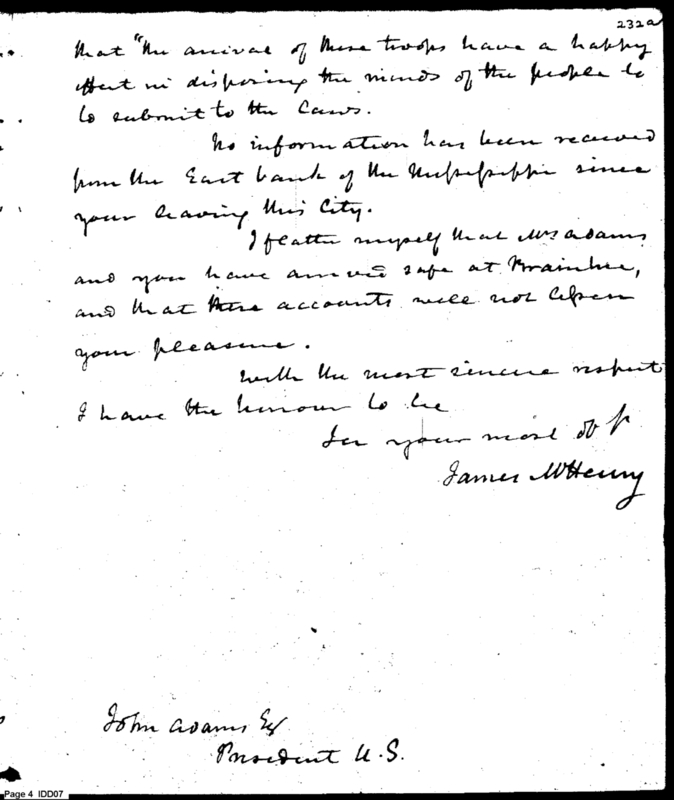 232a
that "the arrival of these troops have a happy
effect in disposing the minds of the people to
to submit to the Laws.
No information has been received
from the East bank of the Mississippi since
your leaving this City.
I flatter myself that Mrs Adams
and you have arrived safe at Braintree,
and that these accounts will not lessen
your pleasure.
with the most sincere respect
I have the honour to be
Sir your most ob st
James McHenry
John Adams Esq
President U.S.
Page 4 IDD07